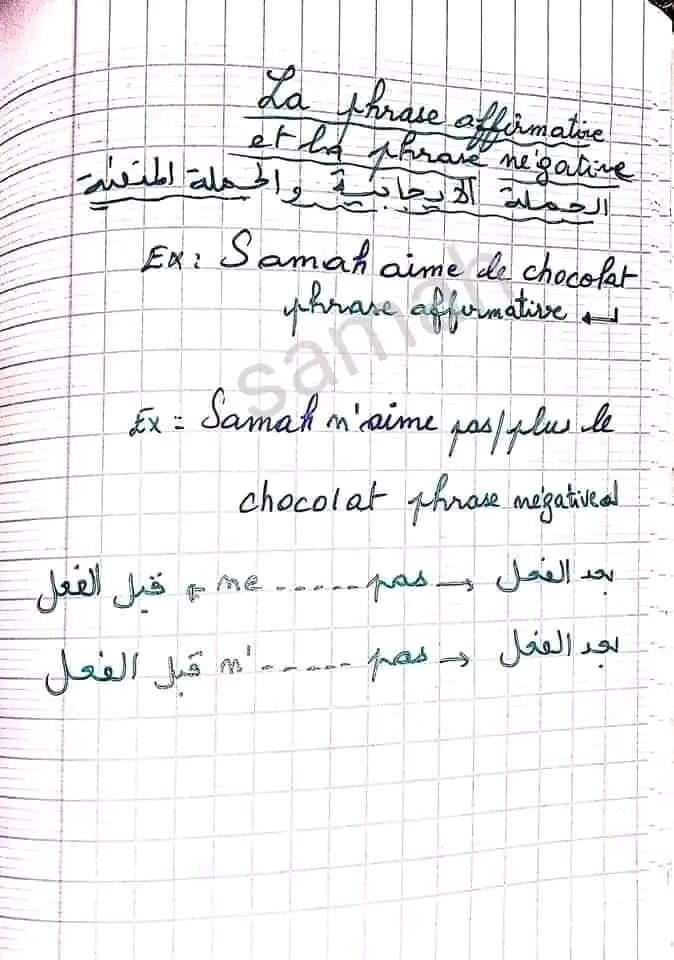 La phrase affirmative
et la phrase négative
الجملة الايجابية والجملة المنفية
Ex: Samah aime le chocolat
phrase affirmative ↵
samah
Ex: Samah n'aime pas/plus le
chocolat phrase négative↵
قبل الفعل ← ne ------ pas → بعد الفعل
قبل الفعل n' ------ pas → بعد الفعل